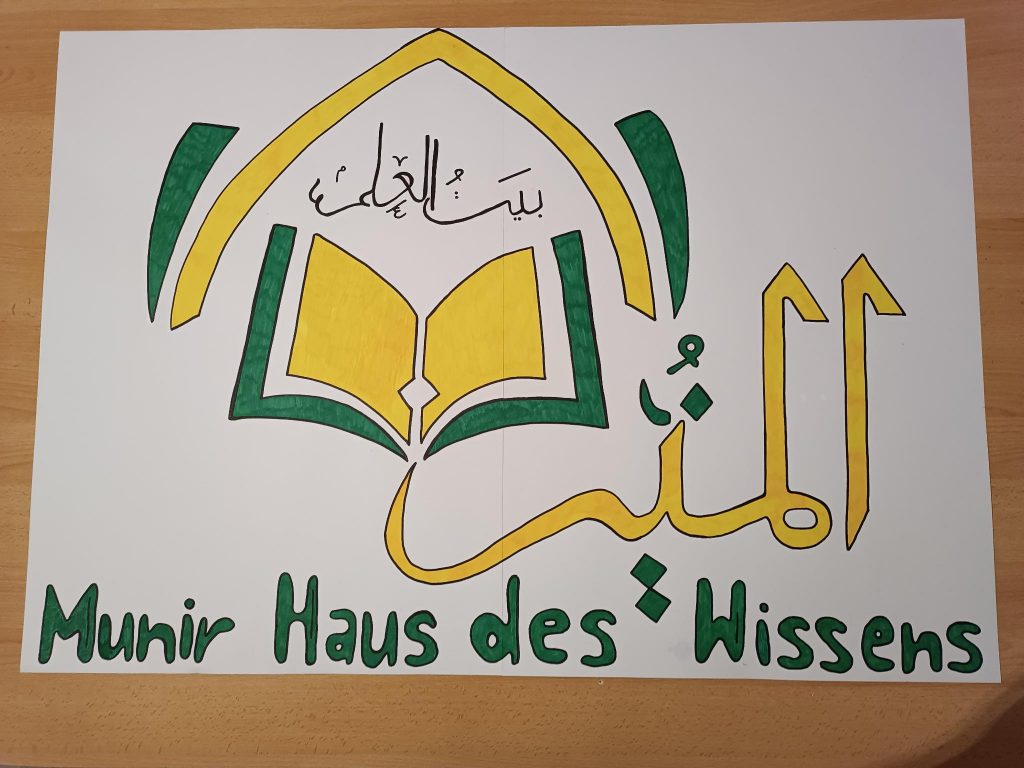 بَيتُ العِلم
المُنير
Munir Haus des Wissens